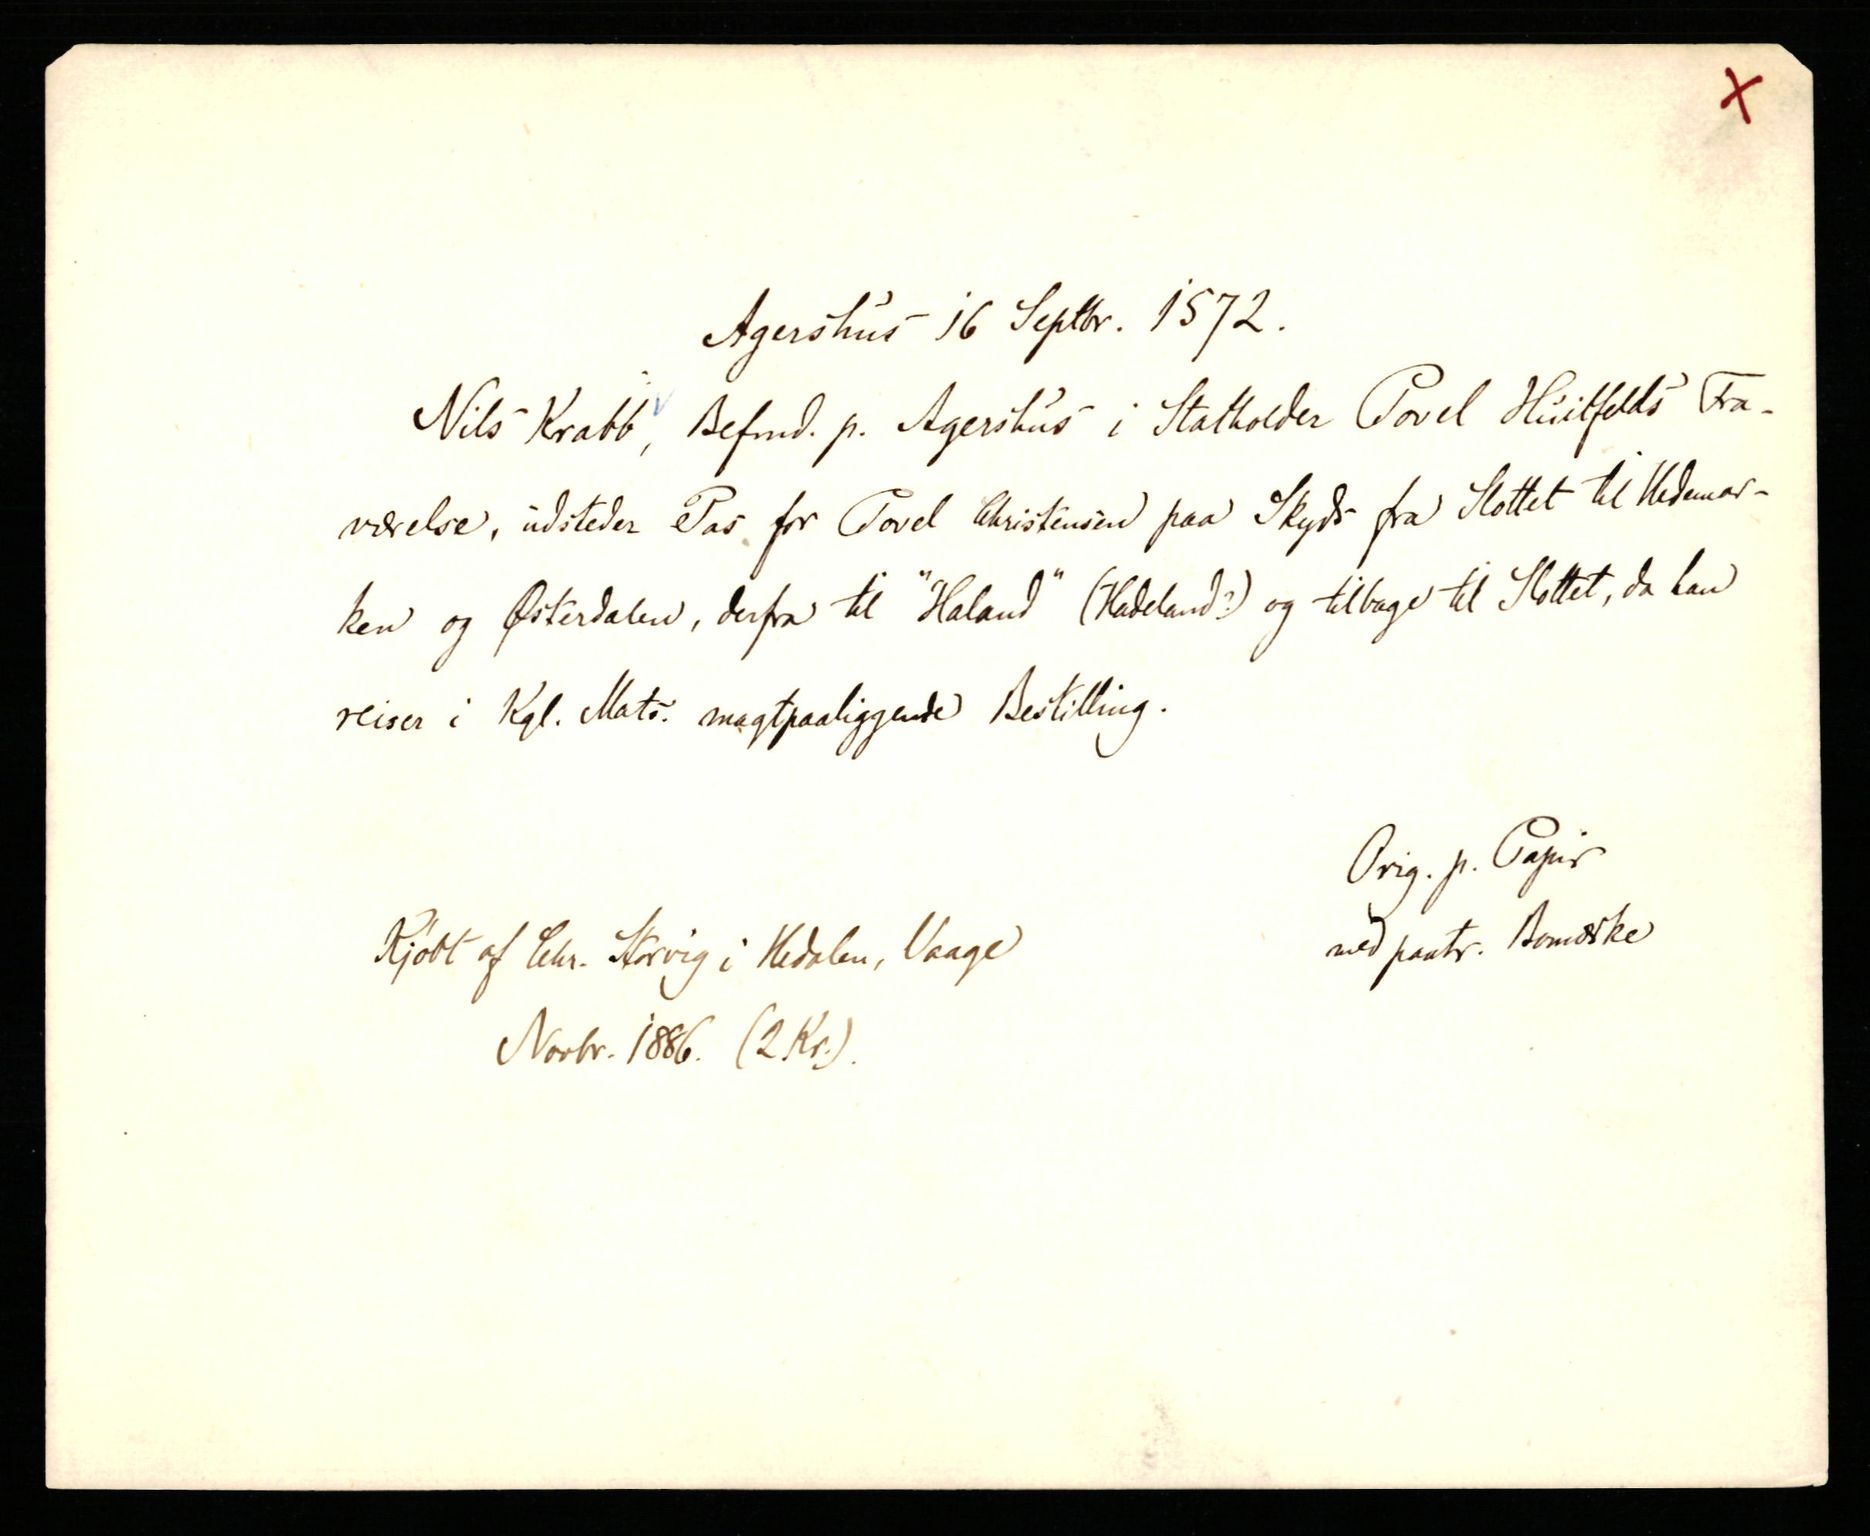 x
Agershus 16 Septbr. 1572.
Nils Krabb, Befmd. p. Agershus i Statholder Povel Huitfelds Fra-
værelse, udsteder Pas for Povel Christensen paa Skyds fra Slottet til Hedemar-
ken og Østerdalen, derfra til "Haland" (Hadeland?) og tilbage til Slottet, da han
reiser i Kgl. Mats. magtpaaliggende Bestilling.
Orig. p. Papir
med paatr. Bomærke
Kjøbt af Chr. Storvig i Hedalen, Vaage
Novbr. 1886. (2 Kr.).